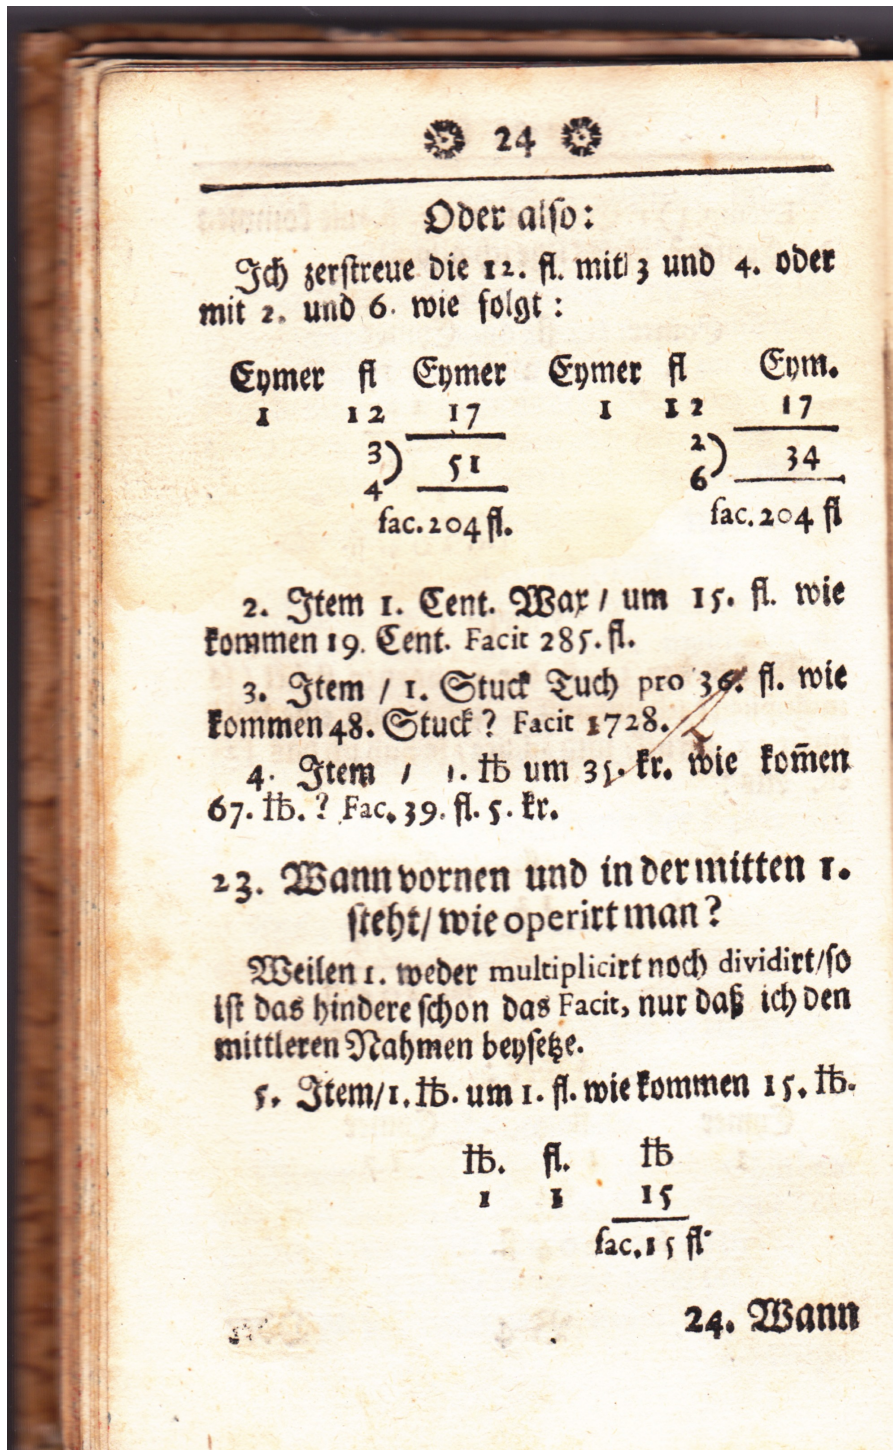 24
Oder also:
Ich zerstreue die 12. fl. mit 3 und 4. oder
mit 2. und 6. wie folgt:
Eymer fl Eymer Eymer fl Eym.
1 12 17 1 12 17
3 ) 51 2 ) 34
4 6
fac. 204 fl. fac. 204 fl
2. Item 1. Cent. Wax / um 15. fl. wie
kommen 19. Cent. Facit 285. fl.
3. Item / 1. Stuck Tuch pro 36. fl. wie
kommen 48. Stuck? Facit 1728.
4. Item / 1. ℔ um 35. kr. wie kom̃en
67. ℔. ? Fac. 39. fl. 5. kr.
23. Wann vornen und in der mitten 1.
steht / wie operirt man?
Weilen 1. weder multiplicirt noch dividirt / so
ist das hindere schon das Facit, nur daß ich den
mittleren Nahmen beysetze.
5. Item / 1. ℔. um 1. fl. wie kommen 15. ℔.
℔. fl. ℔
1 1 15
fac. 15 fl.
24. Wann